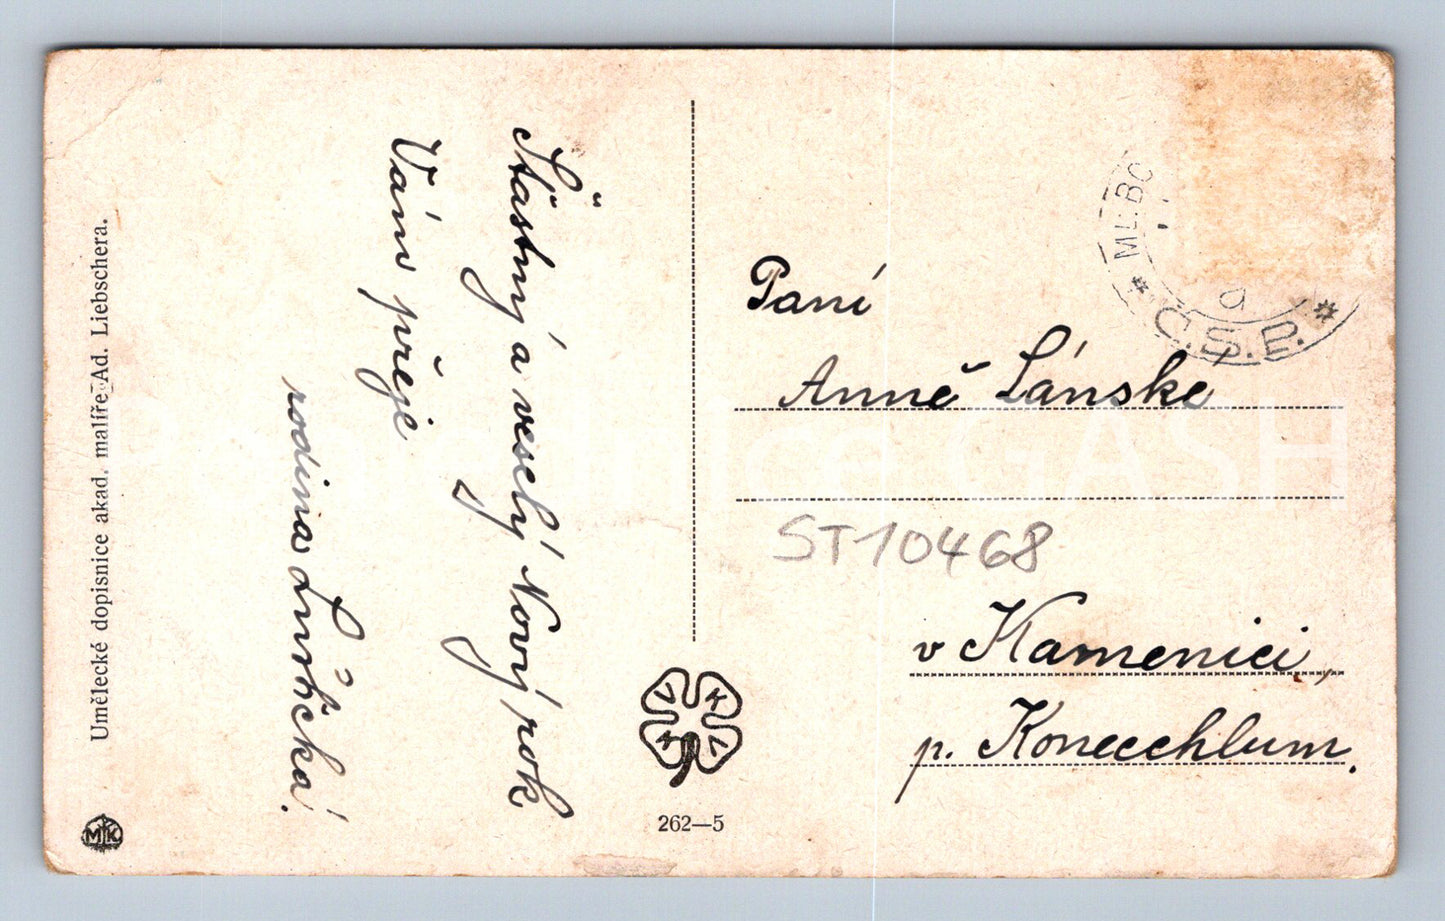 Šťastný a veselý Nový rok
Vám přeje
rodina
Paní
Anně Lánské
v Kamenici,
p. Konecchlum.
ST10468
Umělecké dopisnice akad. malíře Ad. Liebschera.
MK
V K
262—5
* ML.BO
a
Č.S.P. *
Pohlednice GASH